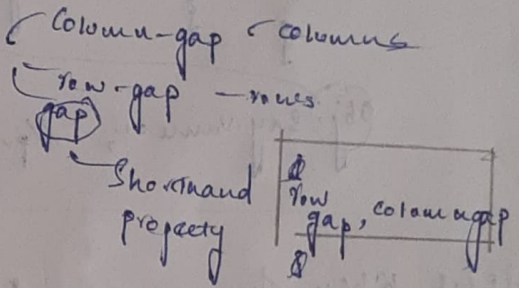 Column-gap - columns
row-gap - rows
gap
Shorthand
property
row
gap, column gap